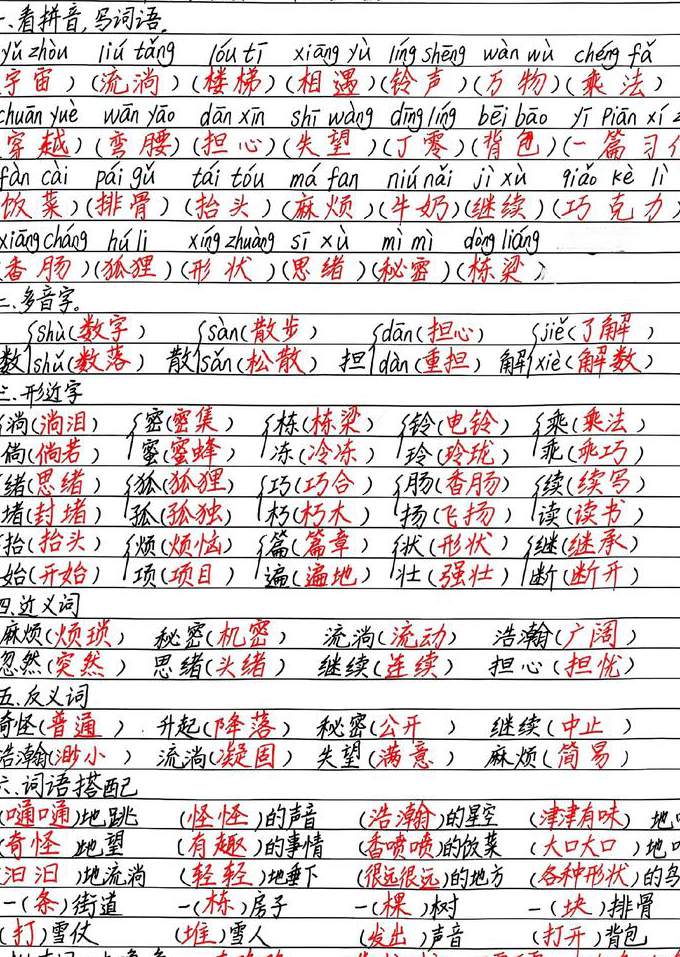 一、看拼音,写词语。
yǔ zhòu liú tǎng lóu tī xiāng yù líng shēng wàn wù chéng fǎ
宇宙)(流淌)(楼梯)(相遇)(铃声)(万物)(乘法)
chuān yuè wān yāo dān xīn shī wàng dīng líng bēi bāo yī piān xí z
穿越)(弯腰)(担心)(失望)(丁零)(背包)(一篇习作
fàn cài pái gǔ tái tóu má fan niú nǎi jì xù qiǎo kè lì
饭菜)(排骨)(抬头)(麻烦)(牛奶)(继续)(巧克力)
xiāng cháng hú li xíng zhuàng sī xù mì mì dòng liáng
香肠)(狐狸)(形状)(思绪)(秘密)(栋梁)
二、多音字。
shù(数字) sàn(散步) dān(担心) jiě(了解)
数 shǔ(数落) 散 sǎn(松散) 担 dàn(重担) 解 xiè(解数)
三、形近字
淌(淌泪) 密(密集) 栋(栋梁) 铃(电铃) 乘(乘法)
倘(倘若) 蜜(蜜蜂) 冻(冷冻) 玲(玲珑) 乖(乖巧)
绪(思绪) 狐(狐狸) 巧(巧合) 肠(香肠) 续(续写)
堵(封堵) 孤(孤独) 朽(朽木) 扬(飞扬) 读(读书)
抬(抬头) 烦(烦恼) 篇(篇章) 状(形状) 继(继承)
始(开始) 项(项目) 遍(遍地) 壮(强壮) 断(断开)
四、近义词
麻烦(烦琐) 秘密(机密) 流淌(流动) 浩瀚(广阔)
忽然(突然) 思绪(头绪) 继续(连续) 担心(担忧)
五、反义词
奇怪(普通) 升起(降落) 秘密(公开) 继续(中止)
浩瀚(渺小) 流淌(凝固) 失望(满意) 麻烦(简易)
六、词语搭配
(嗵嗵)地跳 (怪怪)的声音 (浩瀚)的星空 (津津有味)地
(奇怪)地望 (有趣)的事情 (香喷喷)的饭菜 (大口大口)地
(汩汩)地流淌 (轻轻)地垂下 (很远很远)的地方 (各种形状)的鸟
一(条)街道 一(栋)房子 一(棵)树 一(块)排骨
(打)雪仗 (堆)雪人 (发出)声音 (打开)背包